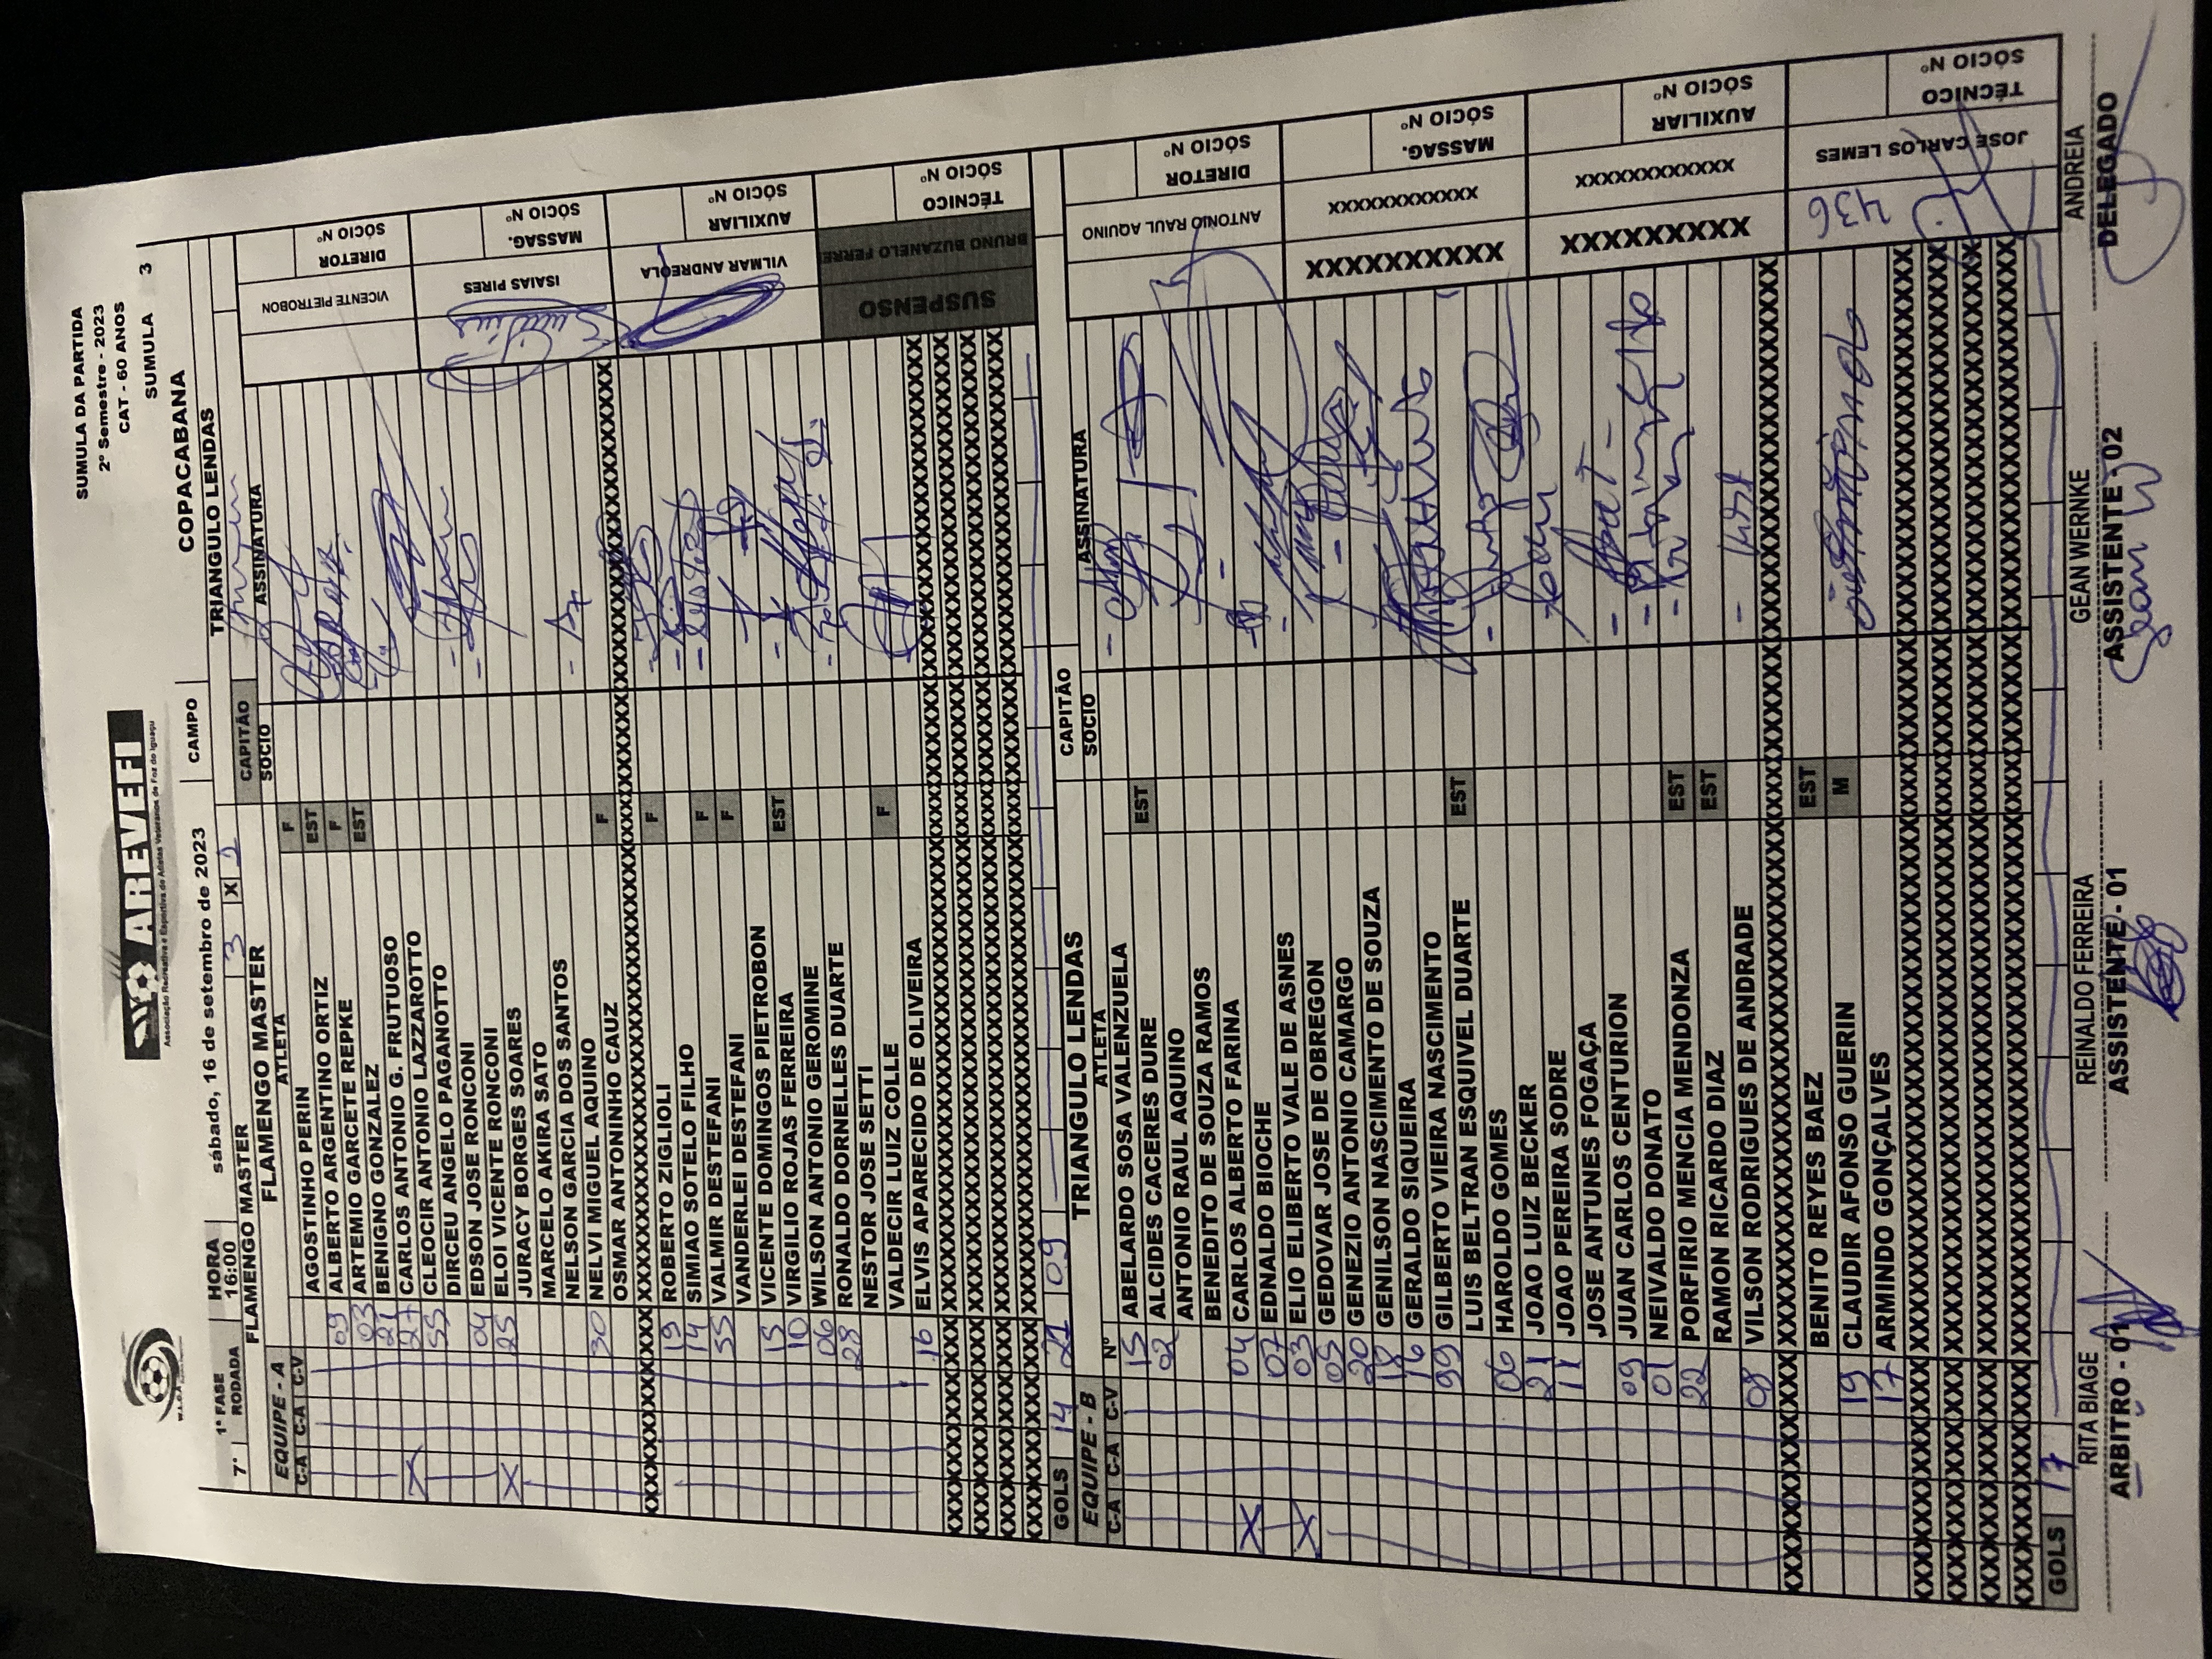 AREVEFI
Associação Recreativa e Esportiva de Atletas Veteranos de Foz do Iguaçu
SUMULA DA PARTIDA
2º Semestre - 2023
CAT - 60 ANOS
SUMULA 3
1ª FASE HORA sábado, 16 de setembro de 2023 CAMPO COPACABANA
7ª RODADA 16:00
FLAMENGO MASTER 3 X TRIANGULO LENDAS
FLAMENGO MASTER CAPITÃO
EQUIPE - A ATLETA SOCIO ASSINATURA
C-A C-A C-V
F
AGOSTINHO PERIN EST
09 ALBERTO ARGENTINO ORTIZ F
03 ARTEMIO GARCETE REPKE EST
21 BENIGNO GONZALEZ
X 27 CARLOS ANTONIO G. FRUTUOSO
55 CLEOCIR ANTONIO LAZZAROTTO
DIRCEU ANGELO PAGANOTTO
04 EDSON JOSE RONCONI
X 25 ELOI VICENTE RONCONI
JURACY BORGES SOARES
MARCELO AKIRA SATO
NELSON GARCIA DOS SANTOS
30 NELVI MIGUEL AQUINO F
OSMAR ANTONINHO CAUZ
19 ROBERTO ZIGLIOLI F
14 SIMIAO SOTELO FILHO
35 VALMIR DESTEFANI F
VANDERLEI DESTEFANI F
15 VICENTE DOMINGOS PIETROBON
10 VIRGILIO ROJAS FERREIRA EST
06 WILSON ANTONIO GEROMINE
28 RONALDO DORNELLES DUARTE
NESTOR JOSE SETTI
VALDECIR LUIZ COLLE F
16 ELVIS APARECIDO DE OLIVEIRA
GOLS 14 21 09
VICENTE PIETROBON DIRETOR SÓCIO Nº
ISAIAS PIRES MASSAG. SÓCIO Nº
VILMAR ANDREOLA AUXILIAR SÓCIO Nº
SUSPENSO BRUNO BUZANELO FERRE TÉCNICO SÓCIO Nº
TRIANGULO LENDAS CAPITÃO
EQUIPE - B ATLETA SOCIO ASSINATURA
C-A C-A C-V Nº
15 ABELARDO SOSA VALENZUELA
02 ALCIDES CACERES DURE EST
ANTONIO RAUL AQUINO
BENEDITO DE SOUZA RAMOS
X 04 CARLOS ALBERTO FARINA
07 EDNALDO BIOCHE
X 03 ELIO ELIBERTO VALE DE ASNES
05 GEDOVAR JOSE DE OBREGON
20 GENEZIO ANTONIO CAMARGO
18 GENILSON NASCIMENTO DE SOUZA
16 GERALDO SIQUEIRA
99 GILBERTO VIEIRA NASCIMENTO
LUIS BELTRAN ESQUIVEL DUARTE EST
06 HAROLDO GOMES
21 JOAO LUIZ BECKER
11 JOAO PEREIRA SODRE
JOSE ANTUNES FOGAÇA
09 JUAN CARLOS CENTURION
01 NEIVALDO DONATO
22 PORFIRIO MENCIA MENDONZA EST
RAMON RICARDO DIAZ EST
08 VILSON RODRIGUES DE ANDRADE
BENITO REYES BAEZ EST
19 CLAUDIR AFONSO GUERIN M
17 ARMINDO GONÇALVES
GOLS 17
ANTONIO RAUL AQUINO DIRETOR SÓCIO Nº
XXXXXXXXXX XXXXXXXXXXXX MASSAG. SÓCIO Nº
XXXXXXXXXX XXXXXXXXXXXX AUXILIAR SÓCIO Nº
436 JOSE CARLOS LEMES TÉCNICO SÓCIO Nº
RITA BIAGE REINALDO FERREIRA GEAN WERNKE ANDREIA
ARBITRO - 01 ASSISTENTE - 01 ASSISTENTE - 02 DELEGADO